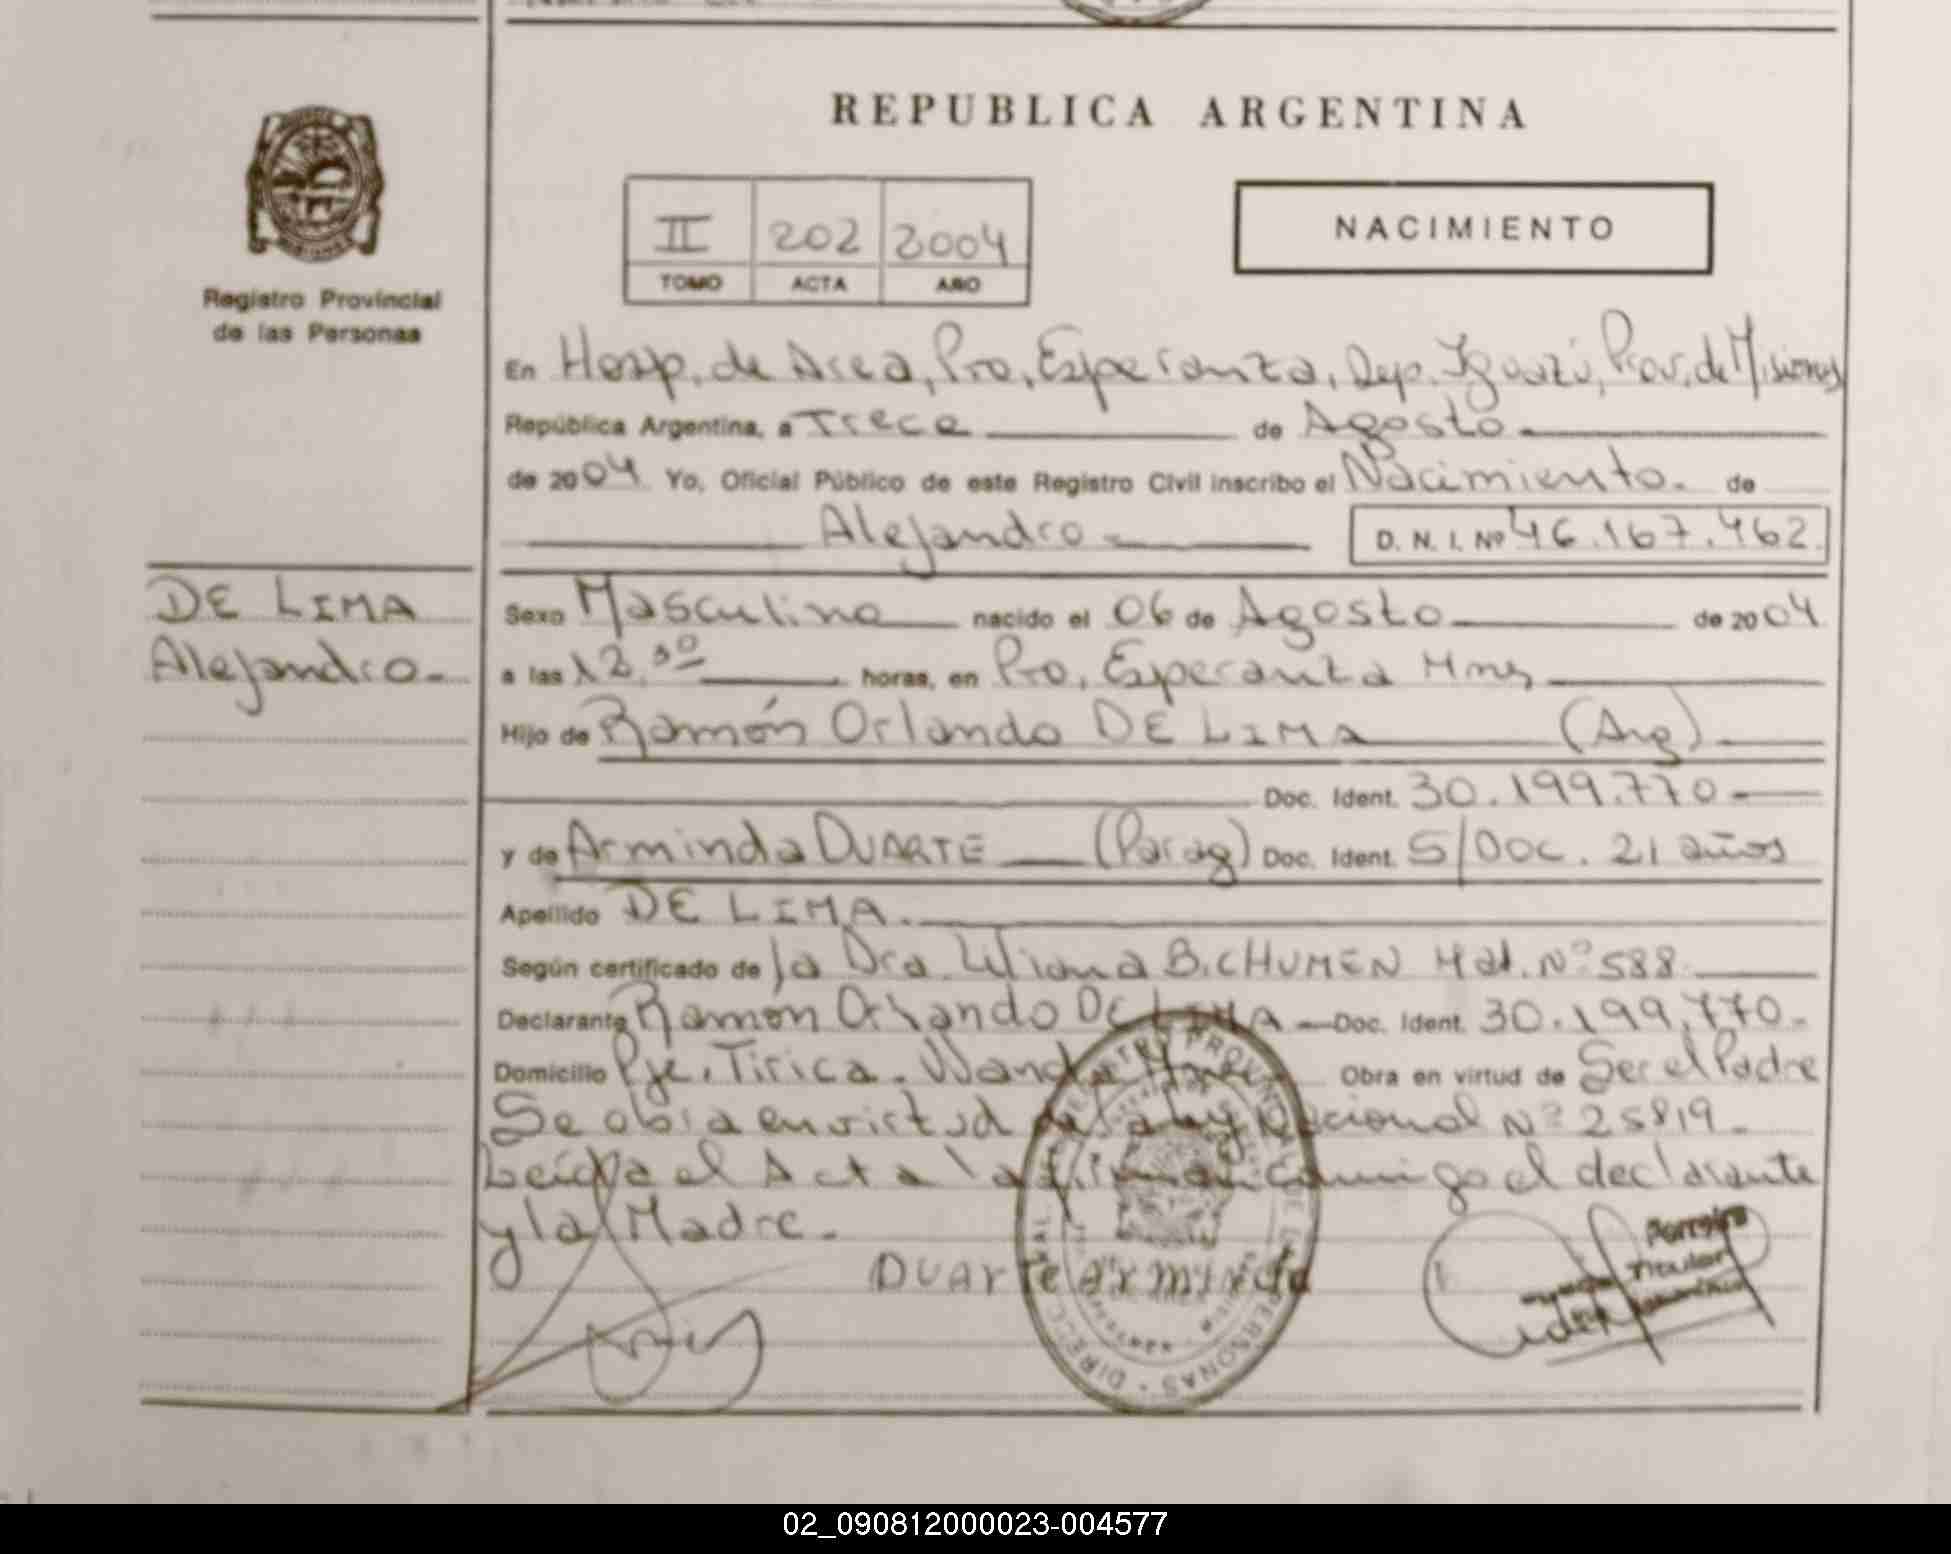 REPUBLICA ARGENTINA
II 202 2004
TOMO ACTA AÑO
NACIMIENTO
Registro Provincial
de las Personas
En Hosp. de Area, Pto. Esperanza, Dep. Iguazú, Prov. de Misiones
República Argentina, a Trece de Agosto
de 2004 Yo, Oficial Público de este Registro Civil inscribo el Nacimiento. de
Alejandro D. N. I. Nº 46.167.462
DE LIMA
Alejandro
Sexo Masculino nacido el 06 de Agosto de 2004
a las 12.30 horas, en Pto. Esperanza Mnes
Hijo de Ramón Orlando DE LIMA (Arg)
Doc. Ident. 30.199.770
y de Arminda DUARTE (Parag) Doc. Ident. S/Doc. 21 años
Apellido DE LIMA.
Según certificado de la Dra. Liliana B. CHUMEN Mat. Nº 588
Declarante Ramón Orlando De LIMA Doc. Ident. 30.199.770.
Domicilio Pje. Tirica. Wanda Mnes Obra en virtud de Ser el Padre
Se obra en virtud de la Ley Nacional Nº 25819
Leída el Acta la firman conmigo el declarante
y la Madre.
DUArte arminda
Ferreira
Titular
REGISTRO PROVINCIAL DE LAS PERSONAS
02_090812000023-004577